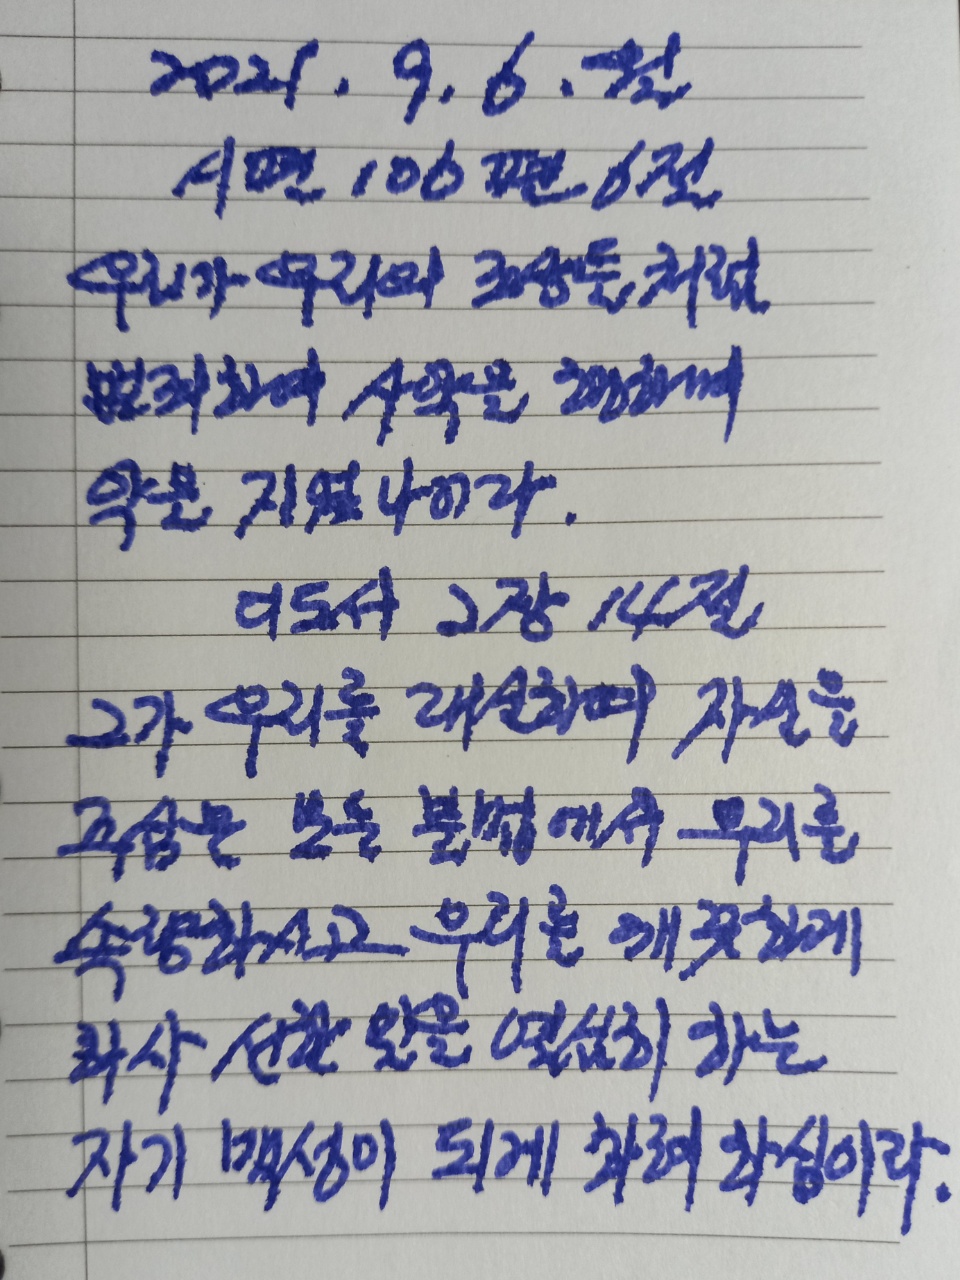 2021. 9. 6. 월
시편 106편 6절
우리가 우리의 조상들처럼
범죄하여 사악을 행하며
악을 지었나이다.
디도서 2장 14절
그가 우리를 대신하여 자신을
주심은 모든 불법에서 우리를
속량하시고 우리를 깨끗하게
하사 선한 일을 열심히 하는
자기 백성이 되게 하려 하심이라.